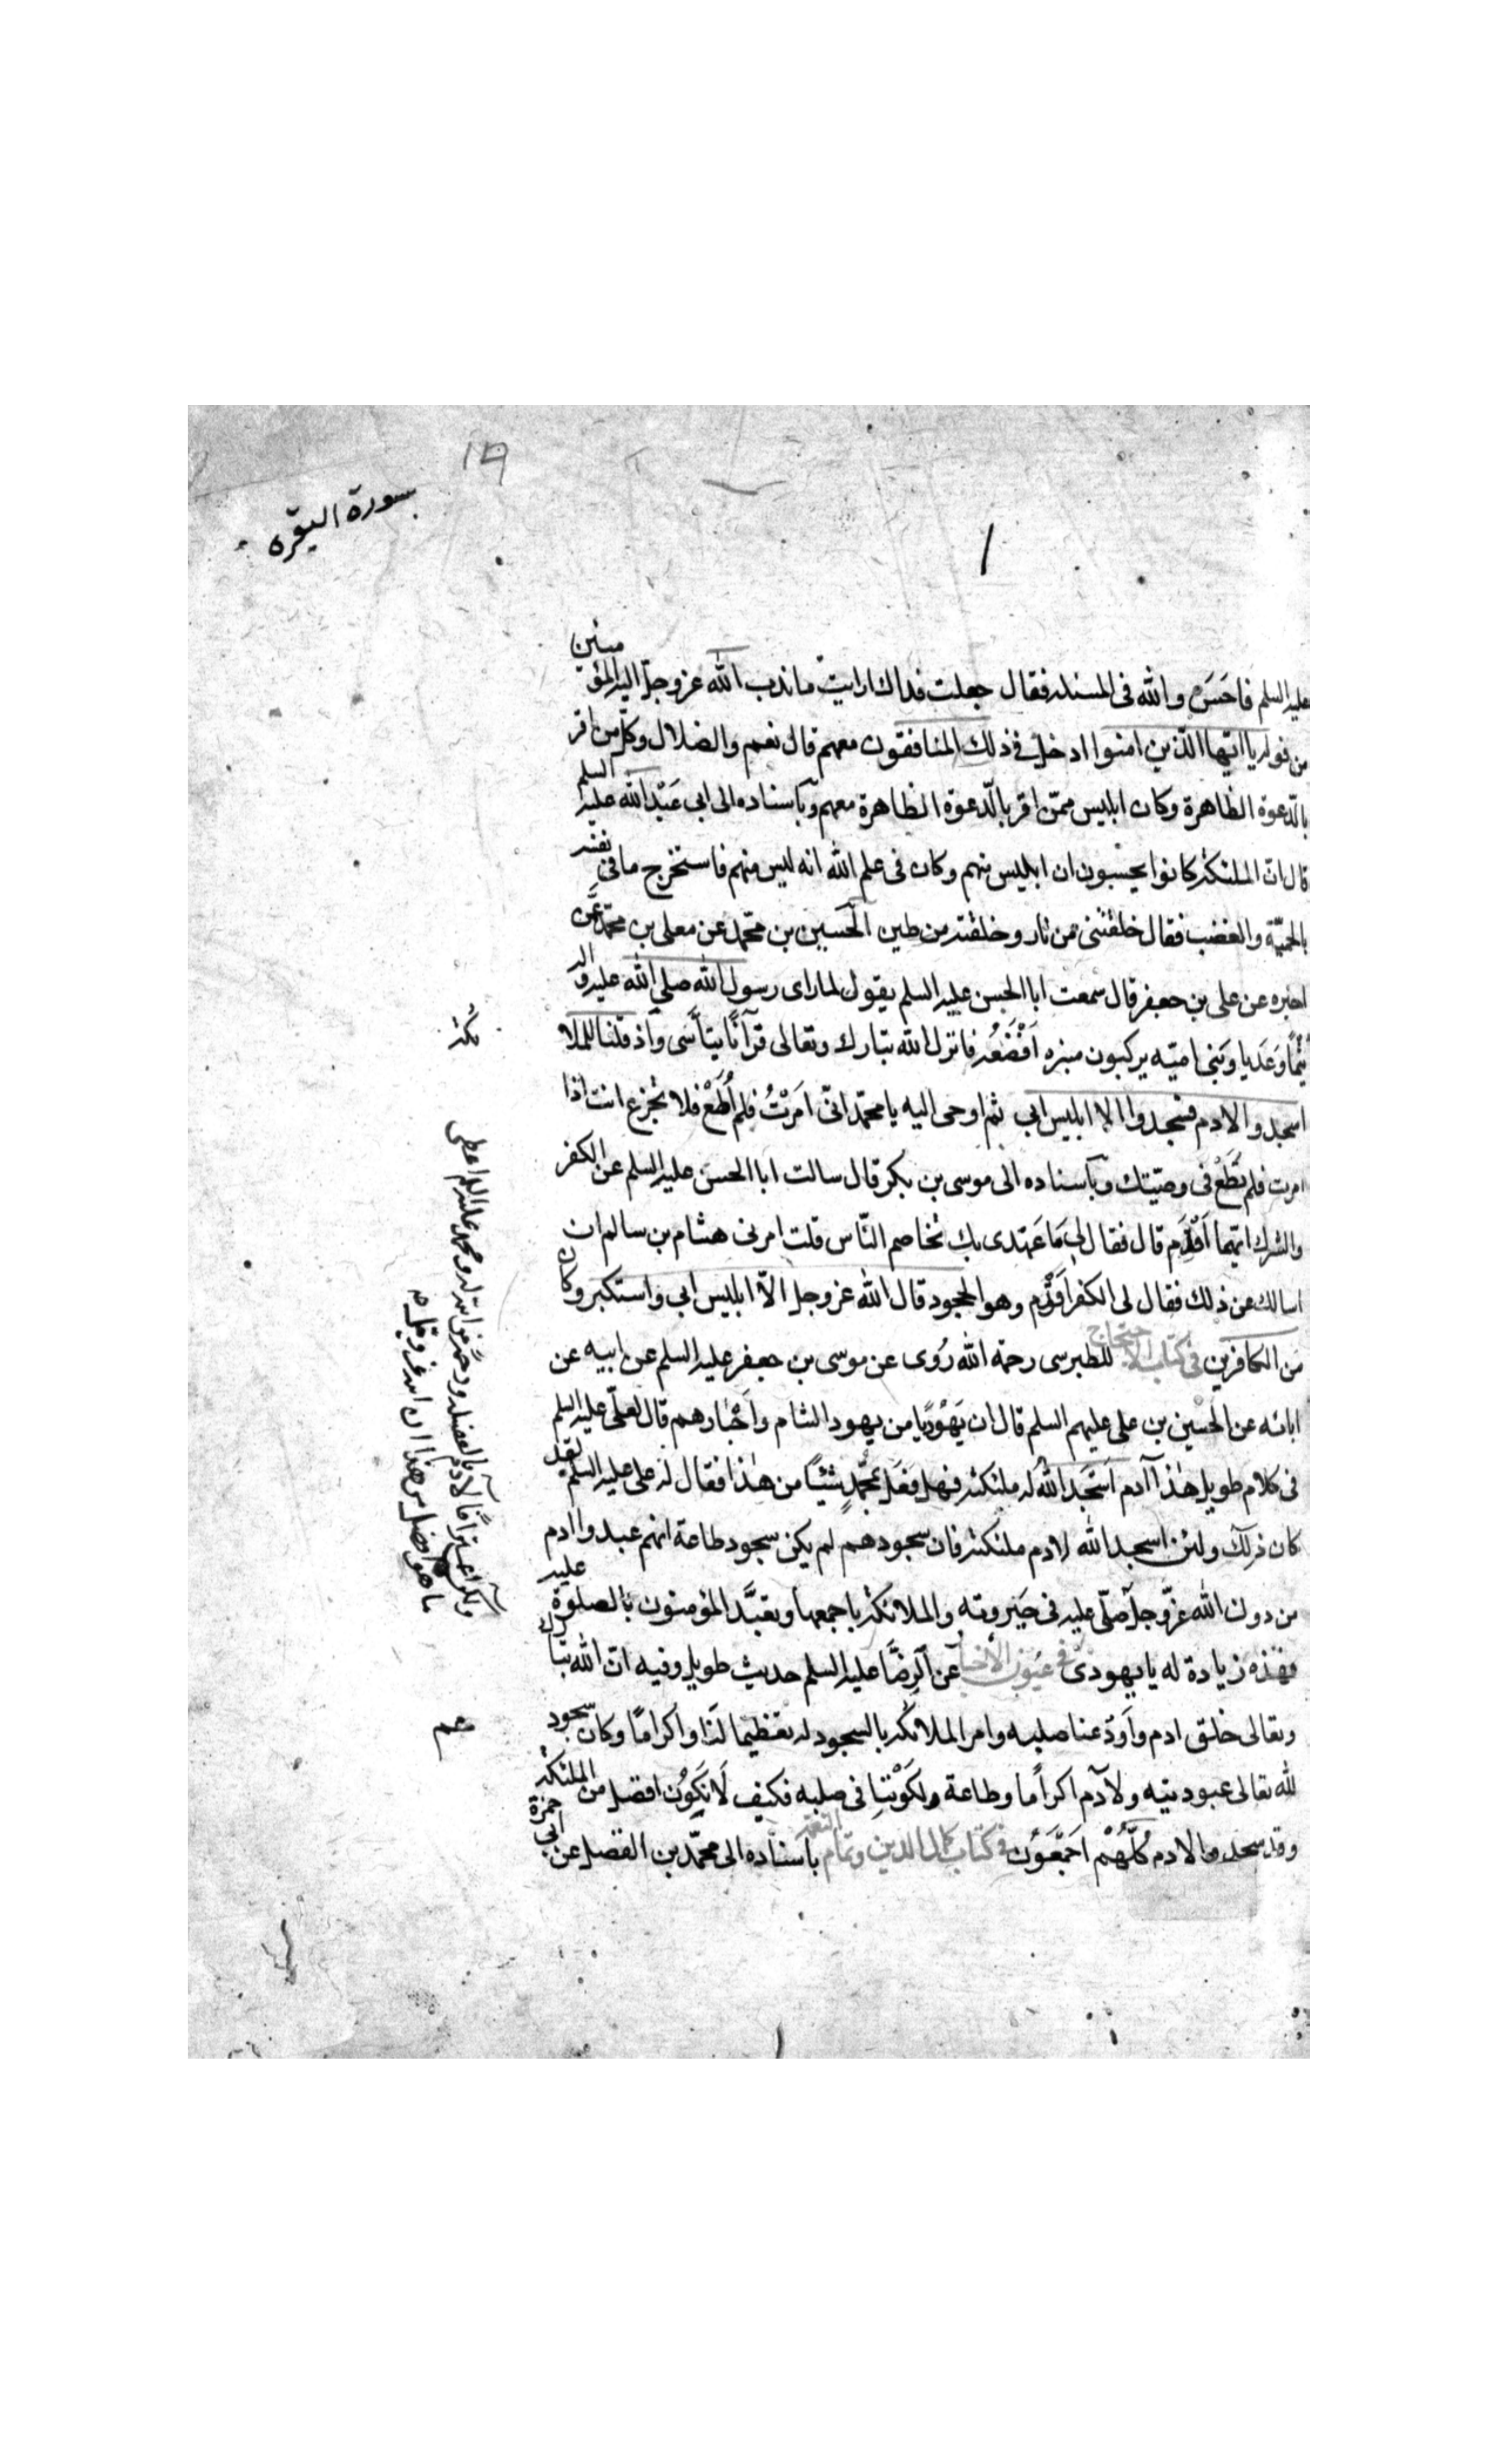 سورة البقرة
عليه السلم فاحسن والله فى المسئله فقال جعلت فداك ارايت ما ندب الله عز وجل اليه المؤمنين
من قوله يا ايها الذين امنوا ادخل فى ذلك المنافقون معهم قال نعم والضلال وكل من اقر
بالدعوة الظاهرة وكان ابليس ممن اقر بالدعوة الظاهرة معهم وباسناده الى ابى عبد الله عليه السلم
قال ان الملئكة كانوا يحسبون ان ابليس منهم وكان فى علم الله انه ليس منهم فاستخرج ما فى نفسه
بالحمية والغضب فقال خلقتنى من نار وخلقته من طين الحسين بن محمد عن معلى بن محمد عمن
اخبره عن على بن جعفر قال سمعت ابا الحسن عليه السلم يقول لما راى رسول الله صلى الله عليه واله
تيمًا وعديا وبنى اميه يركبون منبره افظعه فانزل الله تبارك وتعالى قرآنًا يتأسى واذ قلنا للملا
ئكة
اسجدوا لادم فسجدوا الا ابليس ابى ثم اوحى اليه يا محمد انى امرتُ فلم اُطَعْ فلا تجزع انت اذا
امرت فلم تُطَعْ فى وصيتك وباسناده الى موسى بن بكر قال سالت ابا الحسن عليه السلم عن الكفر
والشرك ايهما اقدم قال فقال لى ما عهدى بك تخاصم الناس قلت امرنى هشام بن سالم ان
اسالك عن ذلك فقال لى الكفر اقدم وهو الجحود قال الله عز وجل الا ابليس ابى واستكبر وكان
من الكافرين فى كتاب الاحتجاج للطبرسى رحمة الله رُوى عن موسى بن جعفر عليه السلم عن ابيه عن
ابائه عن الحسين بن على عليهم السلم قال ان يهوديا من يهود الشام واحبارهم قال لعلى عليه السلم
فى كلام طويل هذا آدم اسجد الله له ملئكته فهل فعل بمحمد شيئًا من هذا فقال له على عليه السلم لقد
كان ذلك ولئن اسجد الله لادم ملئكته فان سجودهم لم يكن سجود طاعة انهم عبدوا ادم
من دون الله عز وجل صلى عليه فى جبروته والملائكة باجمعها وتعبد المؤمنون بالصلوة عليه
فهذه زيادة له يا يهودى فى عيون الأخبار عن الرضا عليه السلم حديث طويل وفيه ان الله تبارك
وتعالى خلق ادم واودعنا صلبه وامر الملائكة بالسجود له تعظيما لنا واكرامًا وكان سجودهم
لله تعالى عبودية ولآدم اكراما وطاعة لكوننا فى صلبه فكيف لا نكون افضل من الملئكة
وقد سجدوا لادم كلهم اجمعون فى كتاب كمال الدين وتمام النعمة باسناده الى محمد بن الفضل عن ابى حمزة
ولكن اعترافًا لآدم بالفضيلة ورحمة من الله له ومحمد عليه السلم اعطى
ما هو افضل من هذا ان الله عز وجل